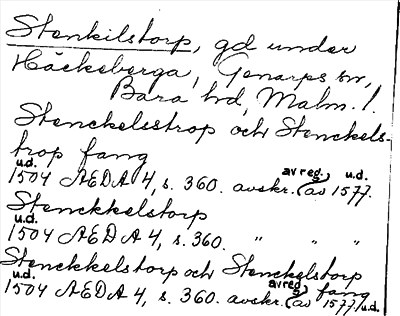 Stenkilstorp, gd under
Häckeberga, Genarps sn,
Bara hd, Malm. l.
Stenckelsstrop och Stenckels-
trop fang
u.d. av reg. u.d.
1504 ÆDA 4, s. 360. avskr. (av 1577.
Stenckkelstorp
u.d.
1504 ÆDA 4, s. 360. " " "
Stenckkelstorp och Stenckelstorp
u.d. av reg. fang
1504 ÆDA 4, s. 360. avskr. (av 1577 u.d.